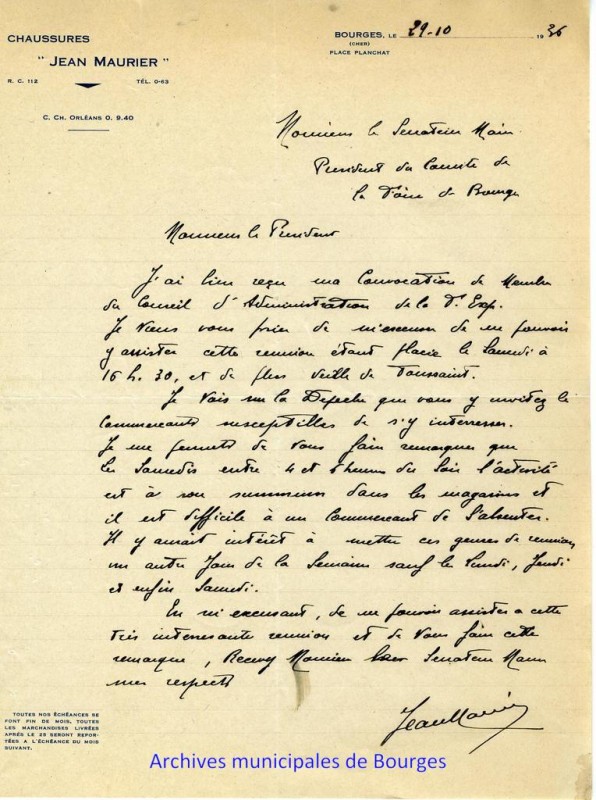 CHAUSSURES
" JEAN MAURIER "
R. C. 112 TÉL. 0-63
C. CH. ORLÉANS O. 9.40
BOURGES, LE 29-10 1936
(CHER)
PLACE PLANCHAT
Monsieur le Senateur
President du Comité de
la Foire de Bourges
Monsieur le President
J'ai bien reçu ma Convocation de Membre
du Conseil d'Administration de la F. Exp.
Je viens vous prier de m'excuser de ne pouvoir
y assister cette reunion étant placée le Samedi à
16 h. 30, et de plus veille de Toussaint.
Je vois sur la Depeche que vous y invitez le
commercants susceptibles de s'y interresser.
Je me permets de vous faire remarquer que
les Samedis entre 4 et heures du Soir l'activité
est à son summum dans les magasins et
il est difficile à un Commercant de s'absenter.
Il y aurait intérêt à mettre ces genres de reunion
un autre Jour de la Semaine sauf le Lundi, Jeudi
et enfin Samedi.
En m'excusant, de ne pouvoir assister a cette
tres interessante reunion et de vous faire cette
remarque, Recevez Monsieur Senateur
mes respects
Jean Maurier
TOUTES NOS ÉCHÉANCES SE
FONT FIN DE MOIS, TOUTES
LES MARCHANDISES LIVRÉES
APRÈS LE 25 SERONT REPOR-
TÉES A L'ÉCHÉANCE DU MOIS
SUIVANT.
Archives municipales de Bourges